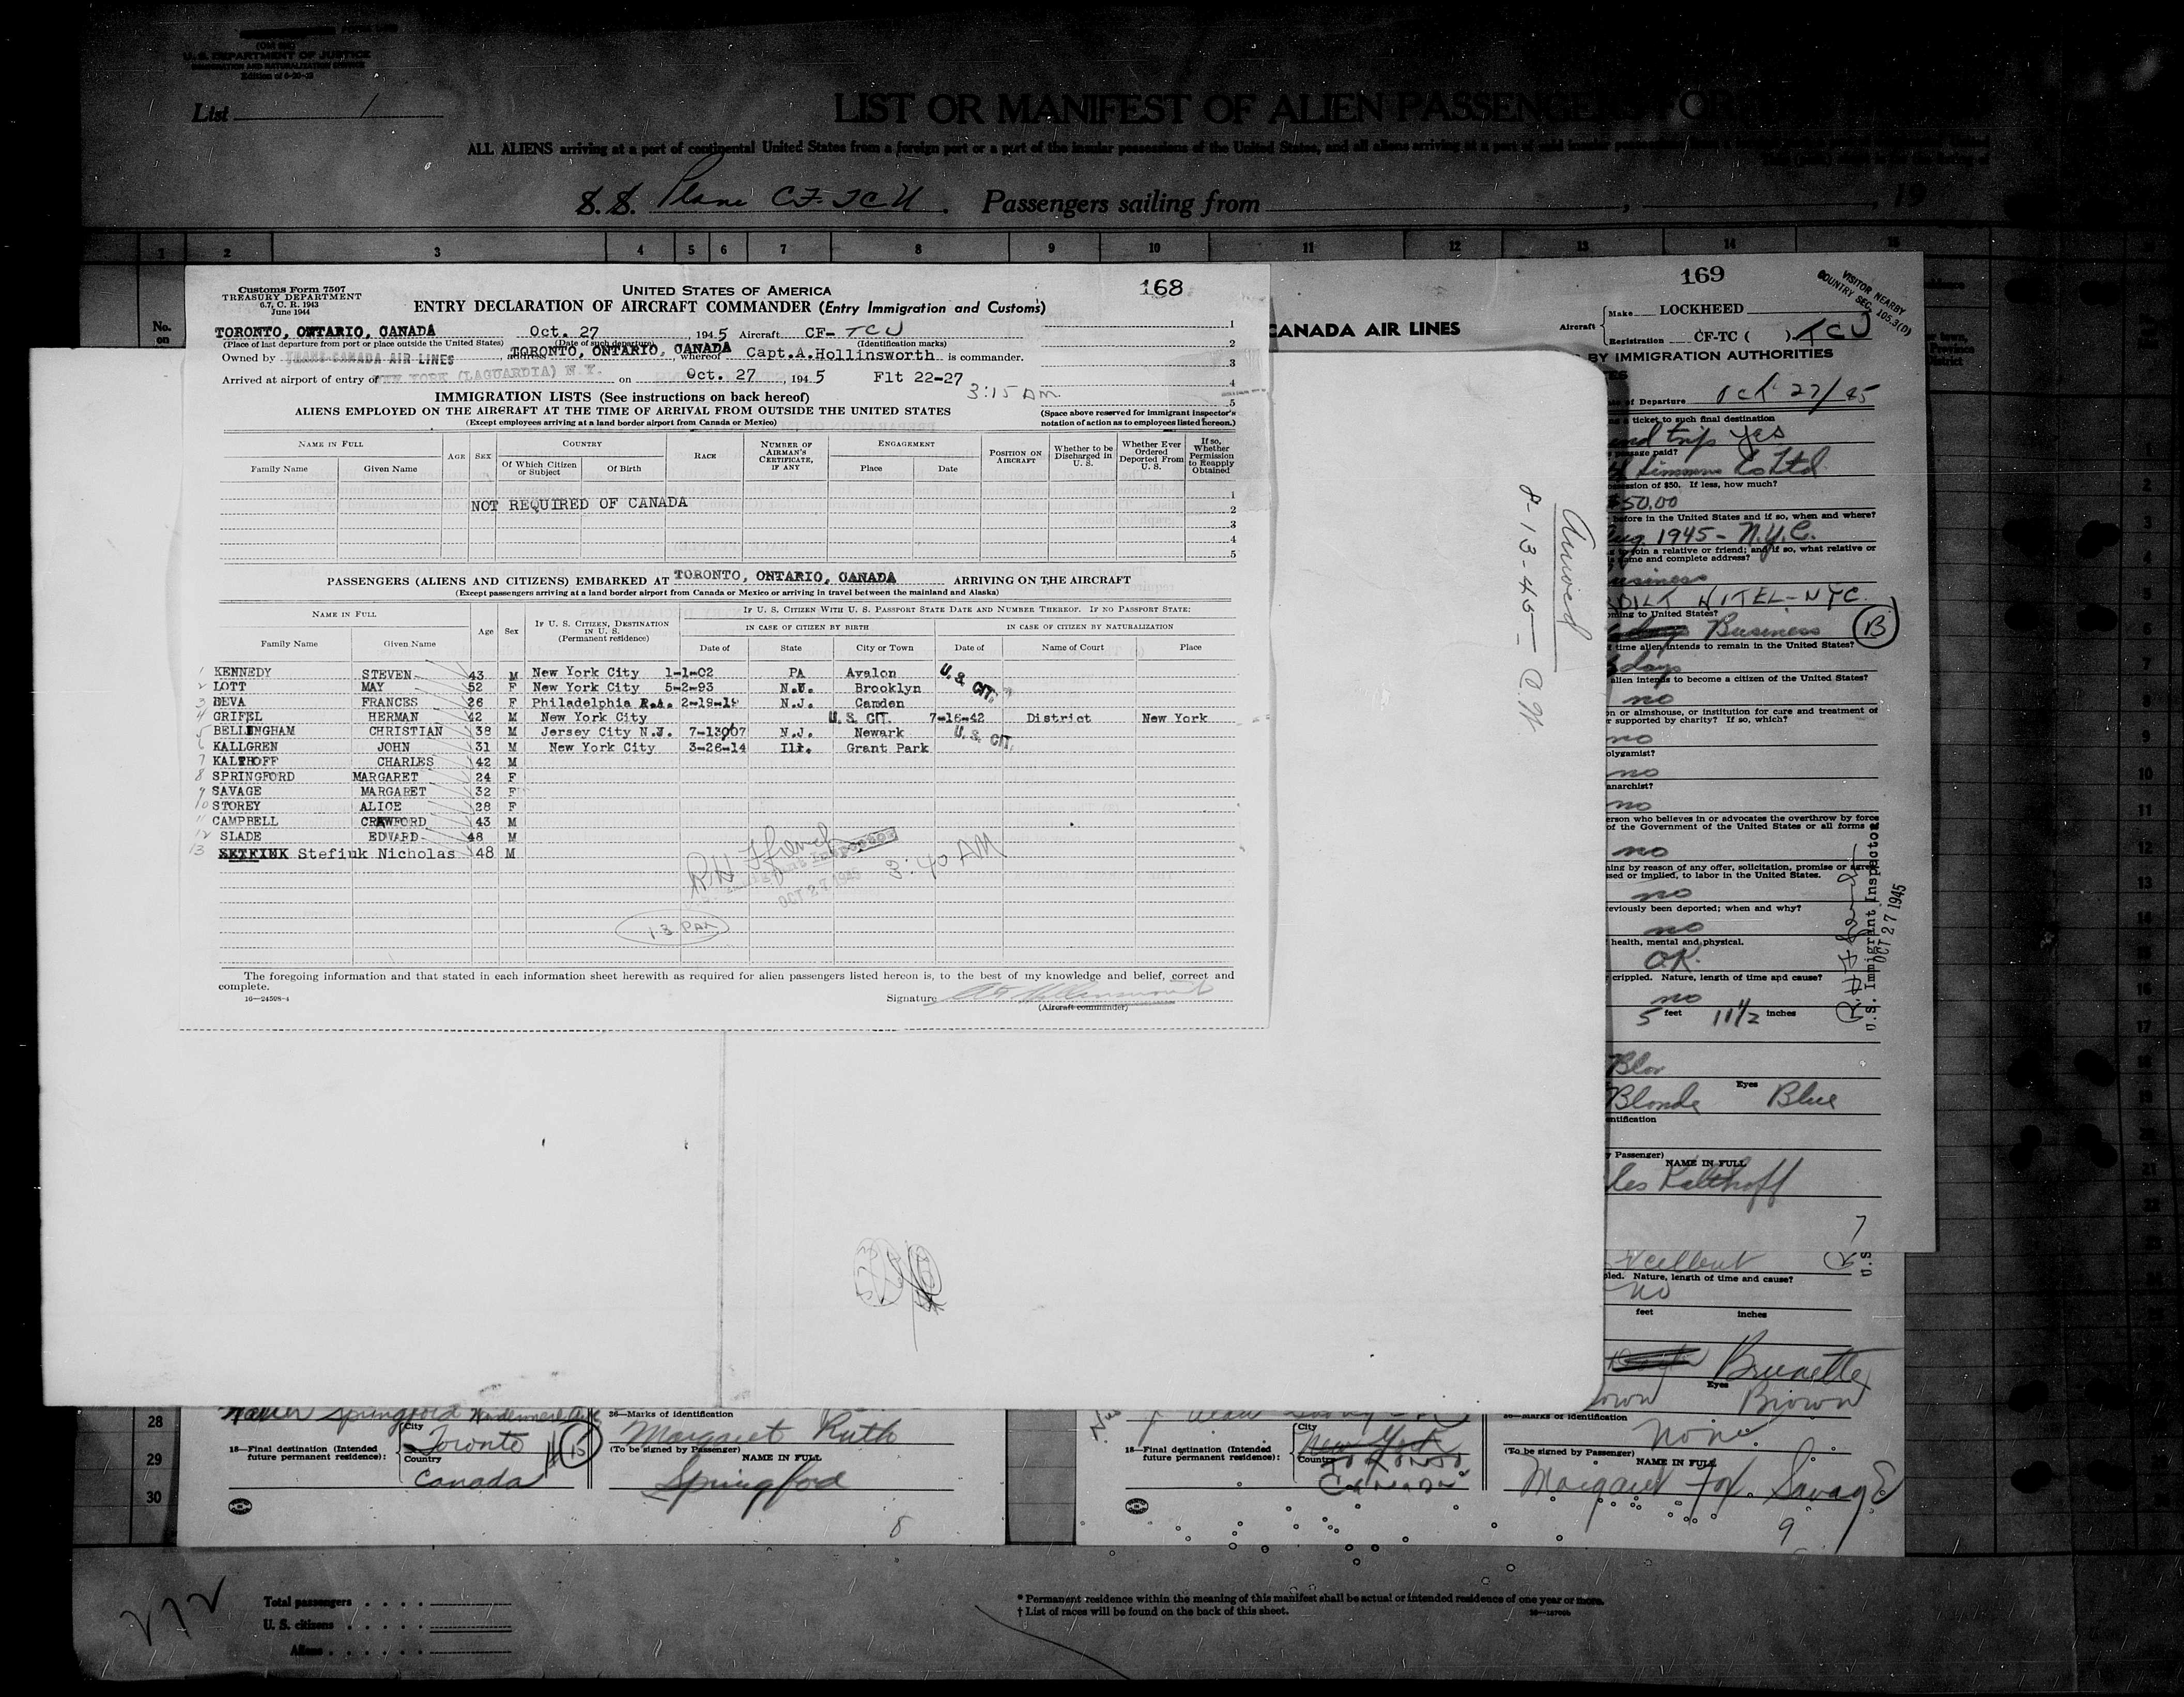 U. S. DEPARTMENT OF JUSTICE
IMMIGRATION AND NATURALIZATION SERVICE
List 1
LIST OR MANIFEST OF ALIEN PASSENGERS FOR
ALL ALIENS arriving at a port of continental United States from a foreign port or a port of the insular possessions of the United States, and all aliens arriving at a port of said insular
S. S. Plane CF-TCU. Passengers sailing from , 19
1 2 3 4 5 6 7 8 9 10 11 12 13 14 15
No. on
Customs Form 7507
TREASURY DEPARTMENT
6.7, C. R. 1943
June 1944
UNITED STATES OF AMERICA
168
ENTRY DECLARATION OF AIRCRAFT COMMANDER (Entry Immigration and Customs)
TORONTO, ONTARIO, CANADA Oct. 27, 1945 Aircraft CF- TCU
(Place of last departure from port or place outside the United States) (Date of such departure) (Identification marks)
Owned by TRANS-CANADA AIR LINES, address TORONTO, ONTARIO, CANADA, whereof Capt.A.Hollinsworth is commander.
Arrived at airport of entry of NEW YORK (LAGUARDIA) N.Y. on Oct. 27, 1945 Flt 22-27
3:15 AM
1
2
3
4
5
IMMIGRATION LISTS (See instructions on back hereof)
ALIENS EMPLOYED ON THE AIRCRAFT AT THE TIME OF ARRIVAL FROM OUTSIDE THE UNITED STATES
(Except employees arriving at a land border airport from Canada or Mexico)
(Space above reserved for immigrant inspector's notation of action as to employees listed hereon.)
NAME IN FULL
Family Name Given Name
AGE SEX
COUNTRY
Of Which Citizen or Subject Of Birth
RACE
NUMBER OF AIRMAN'S CERTIFICATE, IF ANY
ENGAGEMENT
Place Date
POSITION ON AIRCRAFT
Whether to be Discharged in U. S.
Whether Ever Ordered Deported From U. S.
If so, Whether Permission to Reapply Obtained
NOT REQUIRED OF CANADA
1
2
3
4
5
PASSENGERS (ALIENS AND CITIZENS) EMBARKED AT TORONTO, ONTARIO, CANADA ARRIVING ON THE AIRCRAFT
(Except passengers arriving at a land border airport from Canada or Mexico or arriving in travel between the mainland and Alaska)
NAME IN FULL
Family Name Given Name
Age Sex
IF U. S. CITIZEN, DESTINATION IN U. S. (Permanent residence)
IF U. S. CITIZEN WITH U. S. PASSPORT STATE DATE AND NUMBER THEREOF. IF NO PASSPORT STATE:
IN CASE OF CITIZEN BY BIRTH IN CASE OF CITIZEN BY NATURALIZATION
Date of State City or Town Date of Name of Court Place
1 KENNEDY STEVEN 43 M New York City 1-1-02 PA Avalon U. S. CIT.
2 LOTT MAY 52 F New York City 5-2-93 N.Y. Brooklyn
3 BEVA FRANCES 26 F Philadelphia P.A. 2-19-19 N.J. Camden
4 GRIFEL HERMAN 42 M New York City U. S. CIT. 7-16-42 District New York
5 BELLINGHAM CHRISTIAN 38 M Jersey City N.J. 7-13007 N.J. Newark U. S. CIT.
6 KALLGREN JOHN 31 M New York City 3-26-14 Ill. Grant Park
7 KALTHOFF CHARLES 42 M
8 SPRINGFORD MARGARET 24 F
9 SAVAGE MARGARET 32 F
10 STOREY ALICE 28 F
11 CAMPBELL CRAWFORD 43 M
12 SLADE EDWARD 48 M
13 SETFIUK Stefiuk Nicholas 48 M
R.H. Ffrench 3:40 AM
Immigrant Inspector
OCT 27 1945
13 PAX
The foregoing information and that stated in each information sheet herewith as required for alien passengers listed hereon is, to the best of my knowledge and belief, correct and complete.
16—24598-4
Signature
(Aircraft commander)
8-13-45 — C.H.
CANADA AIR LINES
169
VISITOR NEARBY
COUNTRY SEC. 105.3(D)
Aircraft
Make LOCKHEED
Registration CF-TC ( ) TCU
BY IMMIGRATION AUTHORITIES
of Departure Oct 27/45
a ticket to such final destination
trip yes
passage paid?
Simmons Co Ltd
of $50. If less, how much?
$50.00
before in the United States and if so, when and where?
Aug 1945 - N.Y.C.
to join a relative or friend; and if so, what relative or
name and complete address?
Business
HOTEL - NYC.
coming to United States?
Business B
time alien intends to remain in the United States?
days
alien intends to become a citizen of the United States?
no
or almshouse, or institution for care and treatment of
supported by charity? If so, which?
no
polygamist?
no
anarchist?
no
person who believes in or advocates the overthrow by force
of the Government of the United States or all forms
no
by reason of any offer, solicitation, promise or
or implied, to labor in the United States.
no
previously been deported; when and why?
no
health, mental and physical.
O.K.
crippled. Nature, length of time and cause?
no
5 feet 11½ inches
Eyes
Blonde Blue
Passenger) NAME IN FULL
Kalthoff
7
U.S. Immigrant Inspector
OCT 27 1945
Nature, length of time and cause?
no
feet inches
Brunette
Eyes
Brown
36—Marks of identification
None
(To be signed by Passenger) NAME IN FULL
Margaret Fox Savage
9
28
29
30
Springford
18—Final destination (Intended future permanent residence):
City Toronto
Country Canada
15
36—Marks of identification
Margaret Ruth
(To be signed by Passenger) NAME IN FULL
Springford
8
18—Final destination (Intended future permanent residence):
City New York
Country Toronto
Canada
212
Total passengers
U. S. citizens
Aliens
* Permanent residence within the meaning of this manifest shall be actual or intended residence of one year or more.
† List of races will be found on the back of this sheet.